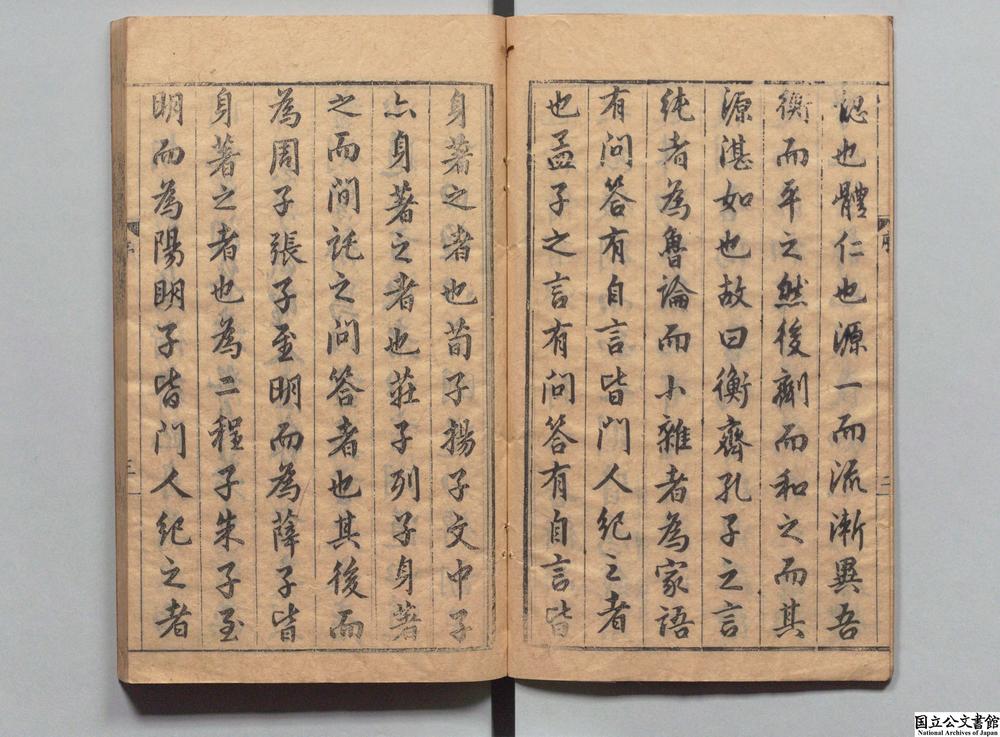 認也體仁也源一而流漸異吾
衡而平之然後劑而和之而其
源湛如也故曰衡齊孔子之言
純者為魯論而小雜者為家語
有問答有自言皆門人紀之者
也孟子之言有問答有自言皆
身著之者也荀子揚子文中子
亦身著之者也莊子列子身著
之而間託之問答者也其後而
為周子張子至明而為薛子皆
身著之者也為二程子朱子至
明而為陽明子皆門人紀之者
序
二
序
三
国立公文書館
National Archives of Japan